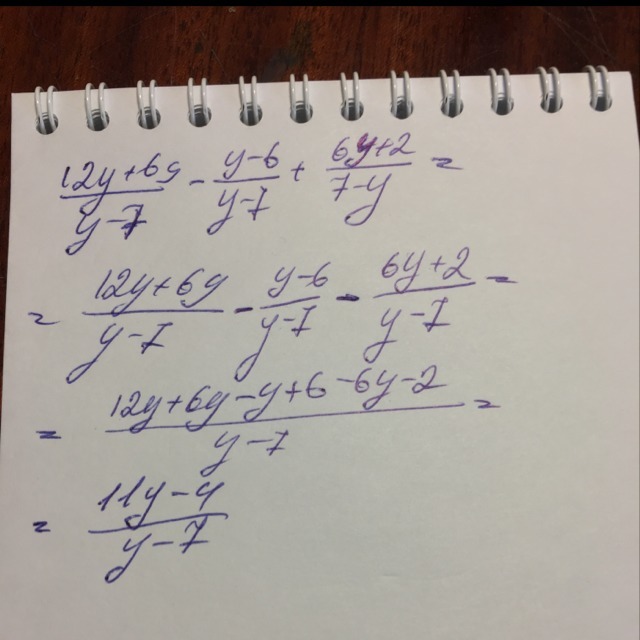 (12y+6y)/(y-7) - (y-6)/(y-7) + (6y+2)/(7-y) =
= (12y+6y)/(y-7) - (y-6)/(y-7) - (6y+2)/(y-7) =
= (12y+6y-y+6-6y-2)/(y-7) =
= (11y-4)/(y-7)